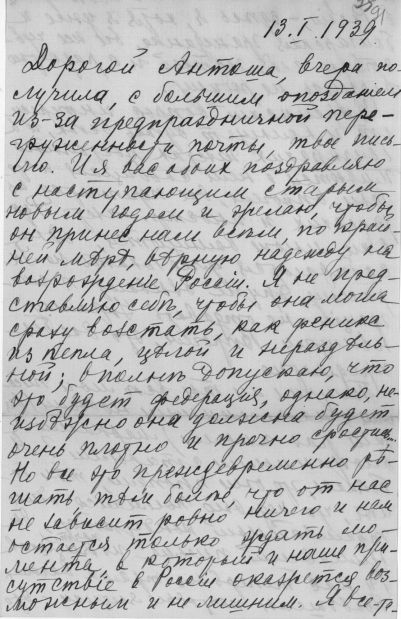 13.I.1939.
Дорогой Антоша, вчера по-
лучила, с большим опозданием
из-за предпраздничной пере-
груженности почты, твое пись-
мо. И я вас обоих поздравляю
с наступающим старым
новым годом и желаю, чтобы
он принес нам всем, по край-
ней мѣрѣ, вѣрную надежду на
возрождение России. Я не пред-
ставляю себѣ, чтобы она могла
сразу возстать, как феникс
из пепла, цѣлой и нераздѣль-
ной; вполнѣ допускаю, что
это будет федерация, однако, не-
избѣжно она должна будет
очень плотно и прочно срастись...
Но все это преждевременно рѣ-
шать тѣм болѣе, что от нас
не зависит ровно ничего и нам
остается только ждать мо-
мента, в который и наше при-
сутствіе в России окажется воз-
можным и не лишним. Я все-та-